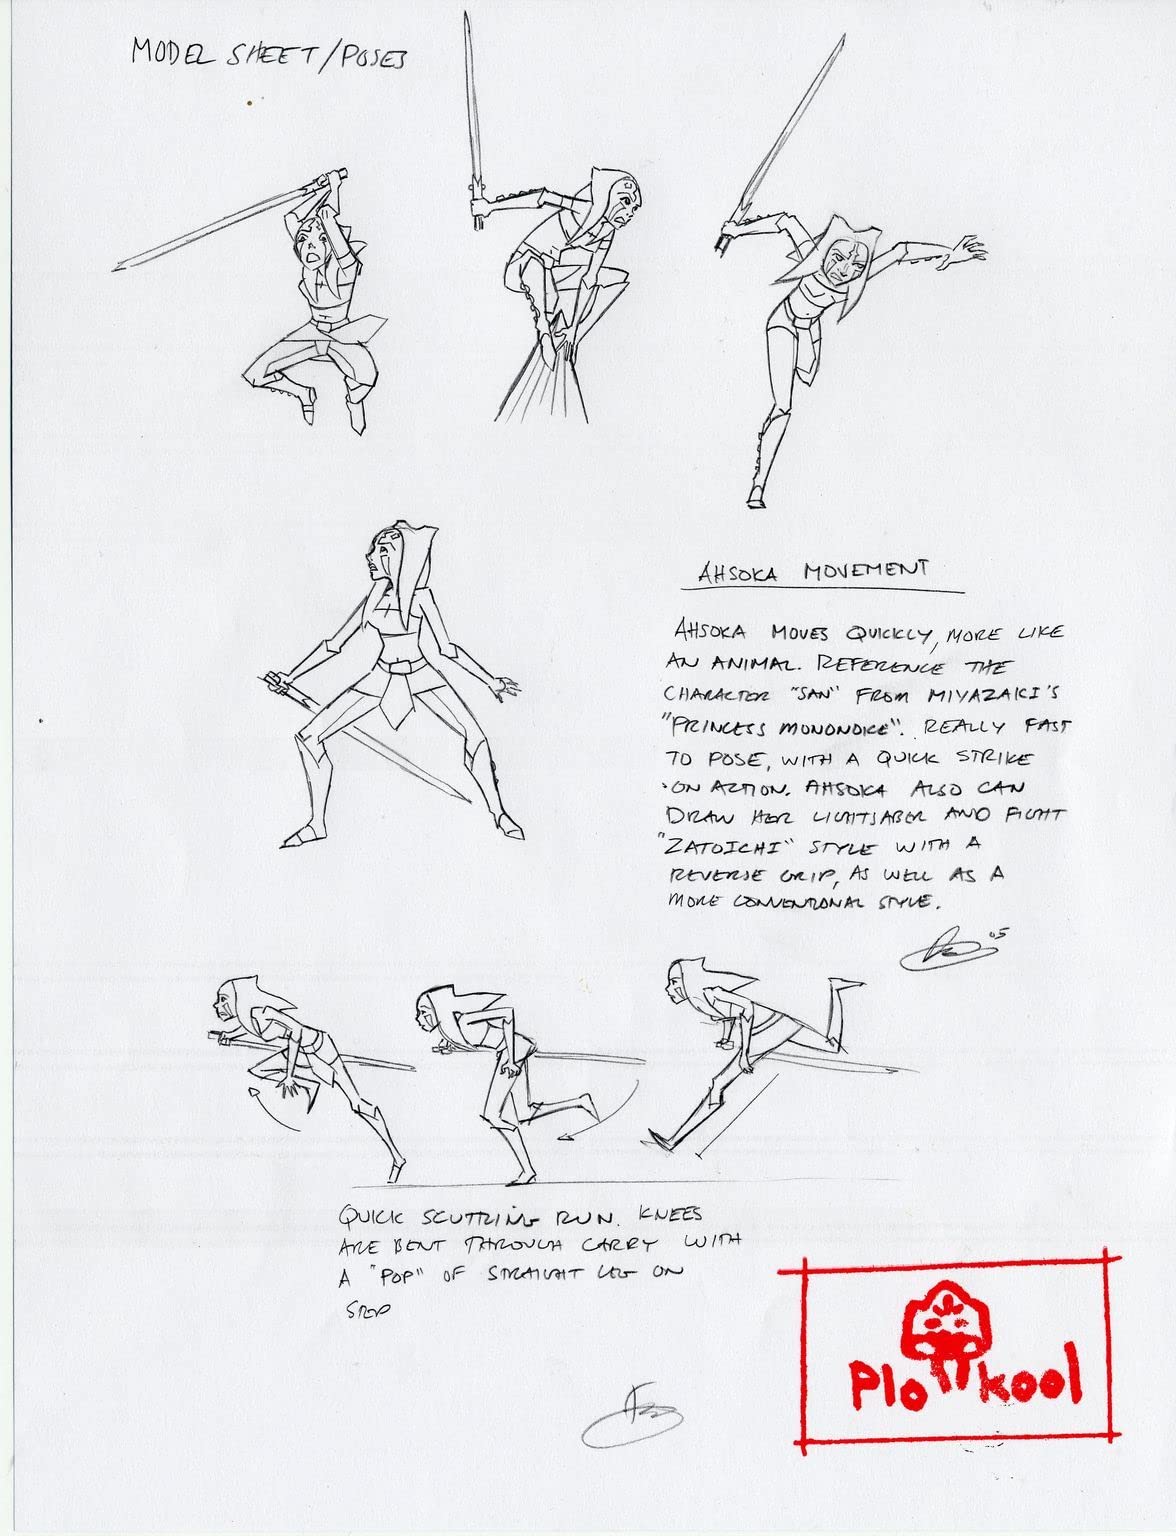 MODEL SHEET/POSES
AHSOKA MOVEMENT
AHSOKA MOVES QUICKLY, MORE LIKE
AN ANIMAL. REFERENCE THE
CHARACTER "SAN" FROM MIYAZAKI'S
"PRINCESS MONONOKE". REALLY FAST
TO POSE, WITH A QUICK STRIKE
ON ACTION. AHSOKA ALSO CAN
DRAW HER LIGHTSABER AND FIGHT
"ZATOICHI" STYLE WITH A
REVERSE GRIP, AS WELL AS A
MORE CONVENTIONAL STYLE.
'05
QUICK SCUTTLING RUN. KNEES
ARE BENT THROUGH CARRY WITH
A "POP" OF STRAIGHT LEG ON
STEP
Plo kool